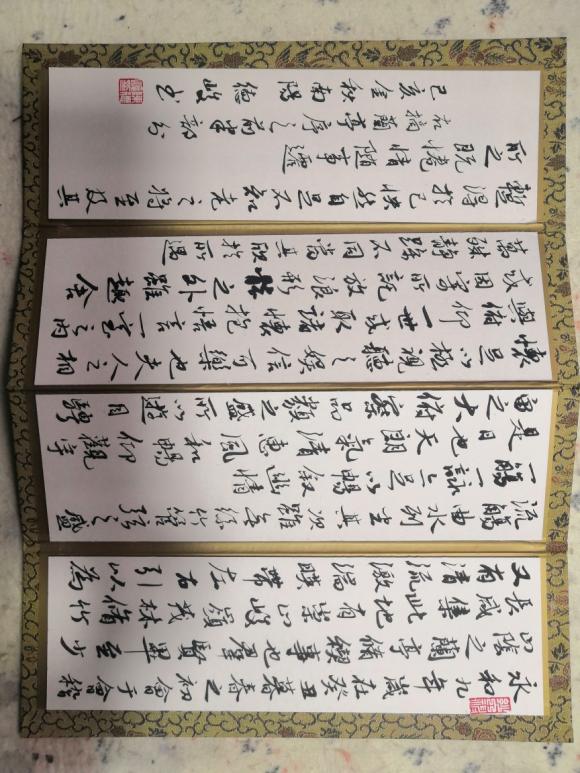 永和九年歲在癸丑暮春之初會于會稽
山陰之蘭亭脩禊事也羣賢畢至少
長咸集此地有崇山峻嶺茂林脩竹
又有清流激湍暎帶左右引以為
流觴曲水列坐其次雖無絲竹管弦之盛
一觴一詠亦足以暢叙幽情
是日也天朗氣清惠風和暢仰觀宇
宙之大俯察品類之盛所以遊目騁
懷足以極視聽之娛信可樂也夫人之相
與俯仰一世或取諸懷抱悟言一室之內
或因寄所託放浪形骸之外雖趣舍
萬殊靜躁不同當其欣於所遇
暫得於己快然自足不知老之將至及其
所之既惓情隨事遷
右摘蘭亭序之前半部分
己亥金秋南陽德峻書